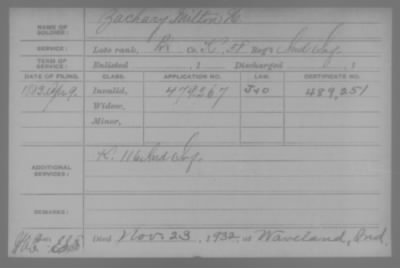 NAME OF SOLDIER: Zachary Milton
SERVICE: Late rank, Co. K, Reg't Ind Inf.
TERM OF SERVICE: Enlisted , 1 Discharged , 1
DATE OF FILING. CLASS. APPLICATION NO. LAW. CERTIFICATE NO.
Apr 9. Invalid, 479267 489,251
Widow,
Minor,
ADDITIONAL SERVICES: K. 116 Ind Inf.
REMARKS:
Died Nov. 23, 1932, at Waveland, Ind.